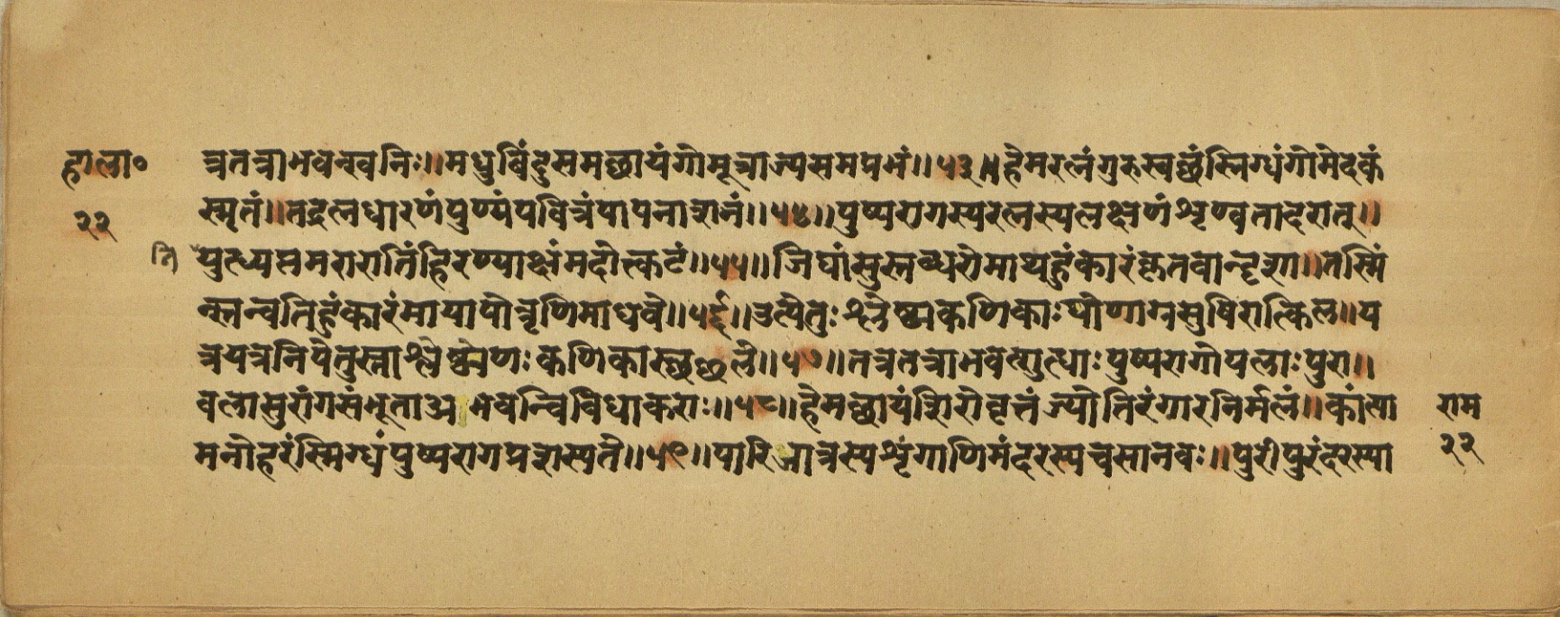 हाला॰ त्रतत्राभवत्खनिः॥मधुबिंदुसमछायंगोमूत्राज्यसमप्रभं॥५३॥हेमरत्नंगुरुस्वछंस्निग्धंगोमेदकं
२२ स्मृतं॥तद्रत्नधारणंपुण्यंपवित्रंपापनाशनं॥५४॥पुष्परागस्यरत्नस्यलक्षणंशृण्वतादरात्॥
ति पुत्थ्यसमरारातिंहिरण्याक्षंमदोत्कटं॥५५॥जिघांसुस्तब्धरोमाथहुंकारंकृतवान्दृशा॥तस्मिं
न्कुर्वतिहुंकारंमायापोत्रृणिमाधवे॥५६॥उत्पेतुःश्लेष्मकणिकाःघोणाग्रसुषिरात्किल॥य
त्रयत्रनिपेतुस्ताश्लेष्मणःकणिकास्छले॥५७॥तत्रतत्राभवत्गुत्थाःपुष्परागोपलाःपुरा॥
बलासुरांगसंभूताअभवन्विविधाकराः॥५८॥हेमछायंशिरोवृत्तंज्योतिरंगारनिर्मलं॥कांत्या राम
मनोहरंस्निग्धंपुष्परागप्रशस्यते॥५९॥पारिजात्रस्यशृंगाणिमंदरस्यचसानवः॥पुरीपुरंदरस्या २२